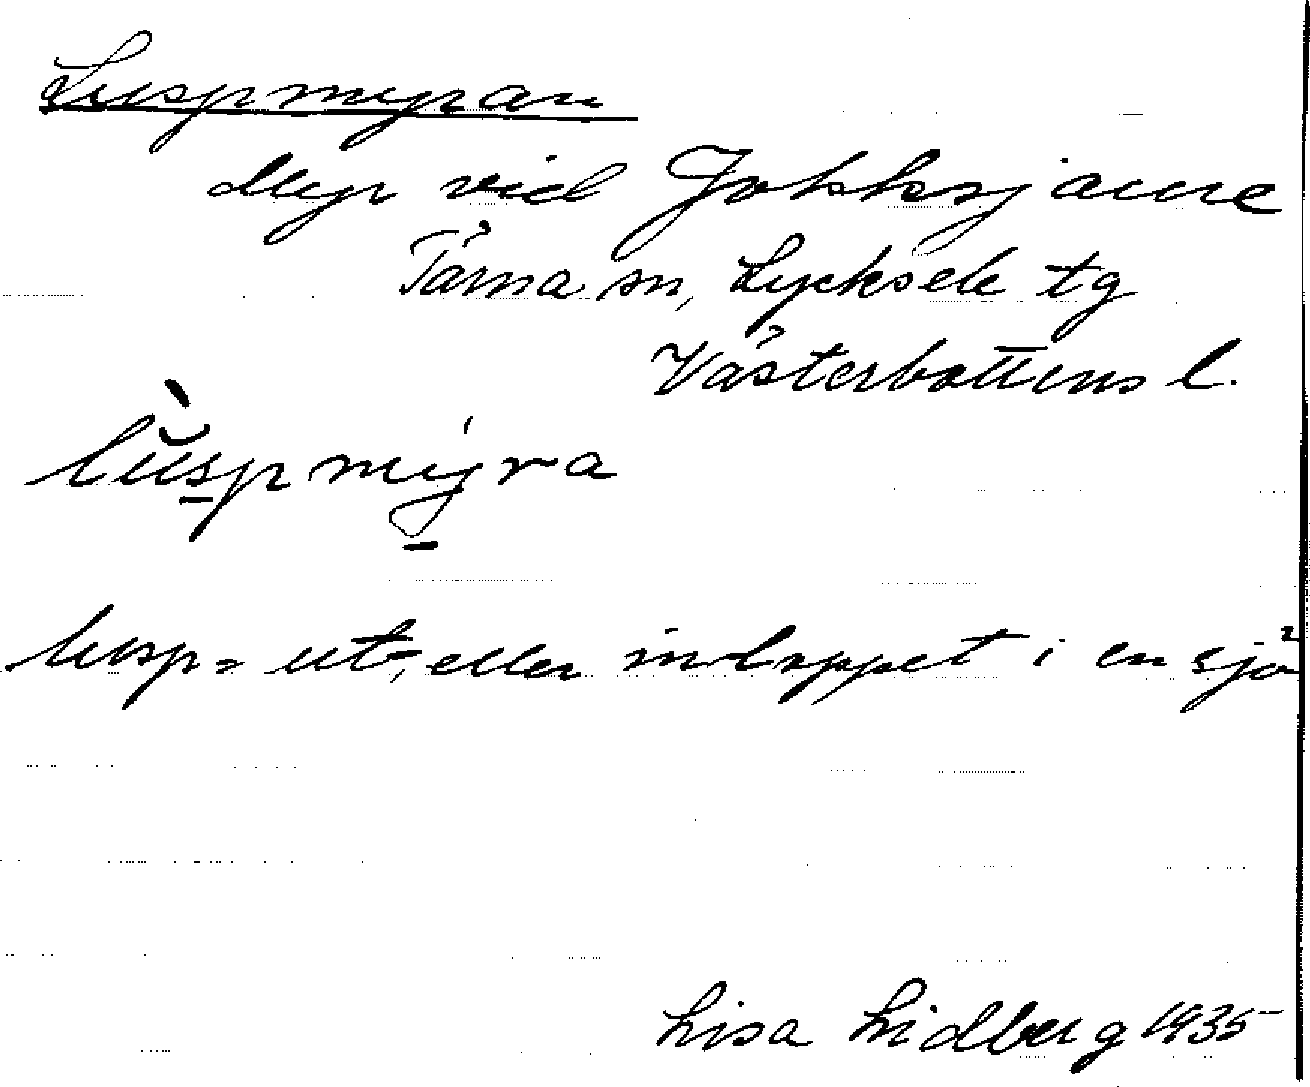 Luspmyran
Myr vid Jokksjaure
Tärna sn, Lycksele tg
Västerbottens l.
lùspmyra
lusp = ut-, eller inloppet i en sjö
Lisa Lidberg 1935